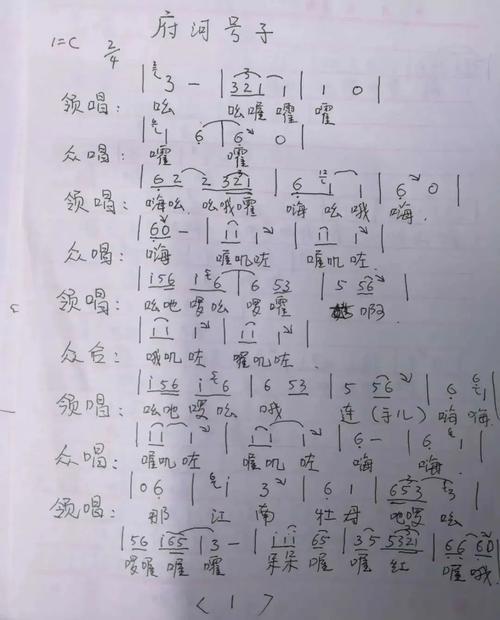 府河号子
1=C 2/4
| 3 - | 321 1 | 1 0 |
领唱: 吆 吆喔嚯 嚯
| 1 6 | 6 0 |
众唱: 嚯 嚯
| 62 2 321 | 6 1 1 | 6 0 |
领唱: 嗨吆 吆哦嚯 嗨 吆 哦 嗨.
| 60 - | 11 1 | 11 1 |
众唱: 嗨 喔叽咗 喔叽咗
| i56 i6 | 6 53 | 5 56 |
领唱: 吆吔啰吆 啰嚯 啊
| 11 1 | 11 1 |
众合: 哦叽咗 喔叽咗.
| i56 i6 | 6 53 | 5 56 | 6 61
领唱: 吆吔啰吆 哦 连(子儿) 嗨 嗨
| 11 1 | 11 1 | 6 - | 6 1 |
众唱: 喔叽咗 喔叽咗 嗨 嗨.
| 06 | i 3 | 6 1 | 653 3 |
领唱: 那 江 南 牡 母 吔啰 吆
| 56 i65 | 3 - | iii 65 | 35 5321 | 66 60 |
啰喔 喔 嚯 呆呆 喔 喔 红 喔哦
< 1 >